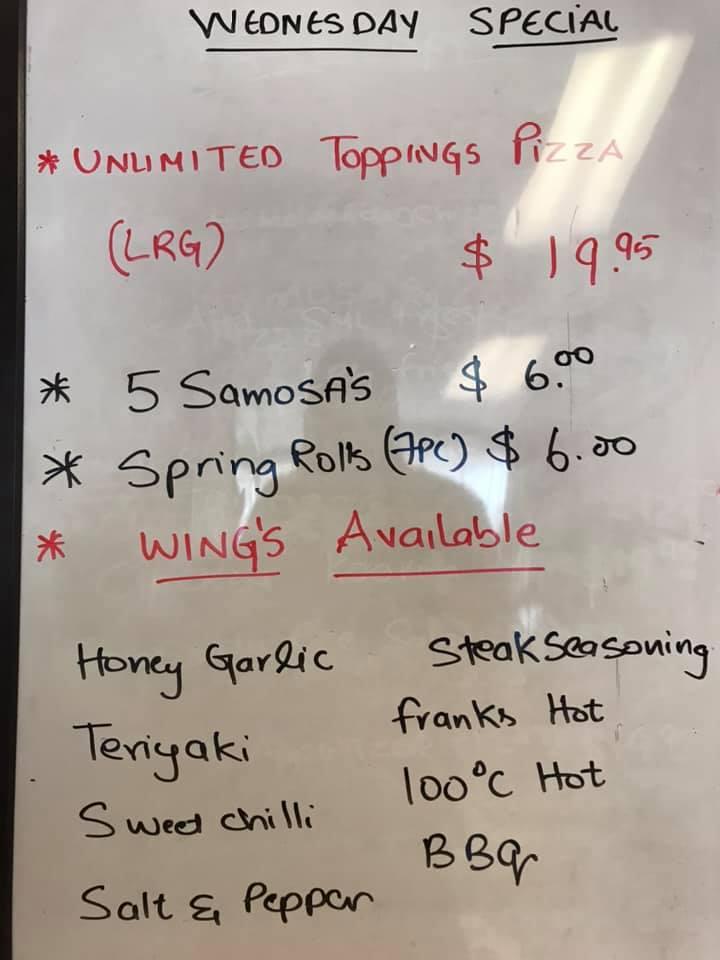 WEDNESDAY SPECIAL
* UNLIMITED TOPPINGS PIZZA
(LRG) $ 19.95
* 5 SAMOSA'S $ 6.00
* Spring Rolls (7PC) $ 6.00
* WING'S Available
Honey Garlic
Teriyaki
Sweet chilli
Salt & Peppar
Steak Seasoning
franks Hot
100°C Hot
BBq